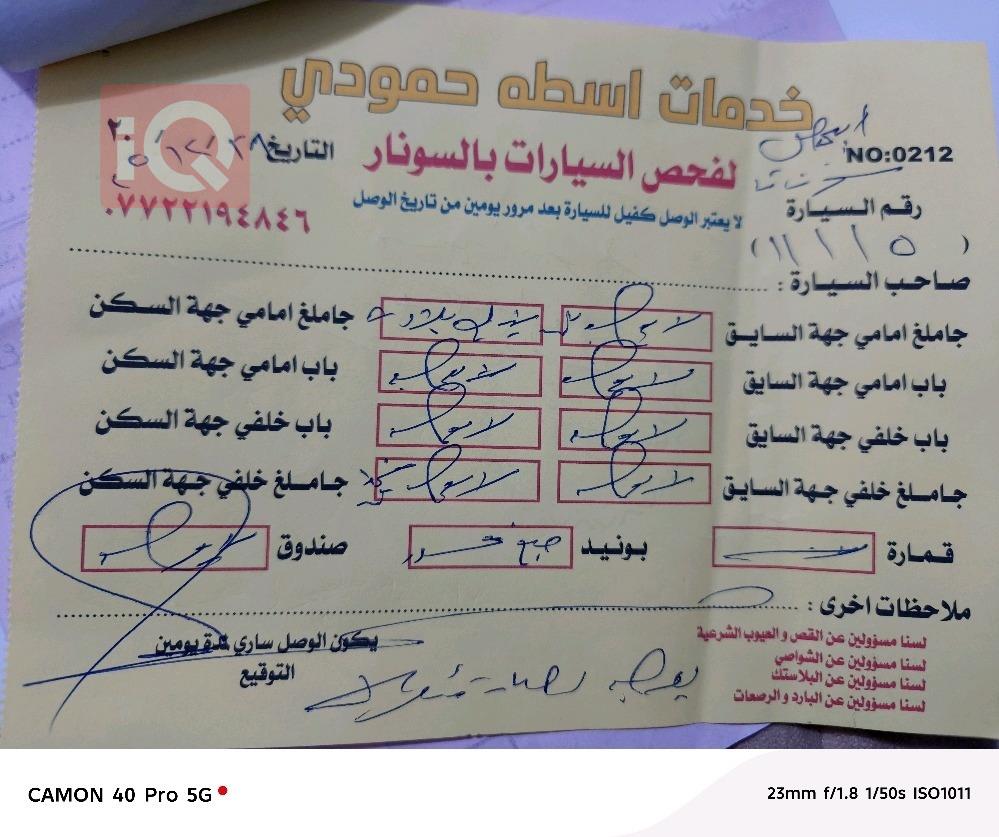 خدمات اسطه حمودي
NO:0212
لفحص السيارات بالسونار
التاريخ ٢٨ / ١٢ / ٢٠
٥
iQ
رقم السيارة
لا يعتبر الوصل كفيل للسيارة بعد مرور يومين من تاريخ الوصل
٠٧٧٢٢١٩٤٨٤٦
( ١١١١٥ )
صاحب السيارة :
جاملغ امامي جهة السايق
جاملغ امامي جهة السكن
باب امامي جهة السايق لا يوجد
لا يوجد باب امامي جهة السكن
باب خلفي جهة السايق لا يوجد
لا يوجد باب خلفي جهة السكن
جاملغ خلفي جهة السايق لا يوجد
لا يوجد جاملغ خلفي جهة السكن
قمارة
بونيد صبغ
صندوق لا يوجد
ملاحظات اخرى :
لسنا مسؤولين عن القص و العيوب الشرعية
لسنا مسؤولين عن الشواصي
لسنا مسؤولين عن البلاستك
لسنا مسؤولين عن البارد و الرصعات
يكون الوصل ساري لمدة يومين
التوقيع
CAMON 40 Pro 5G
23mm f/1.8 1/50s ISO1011